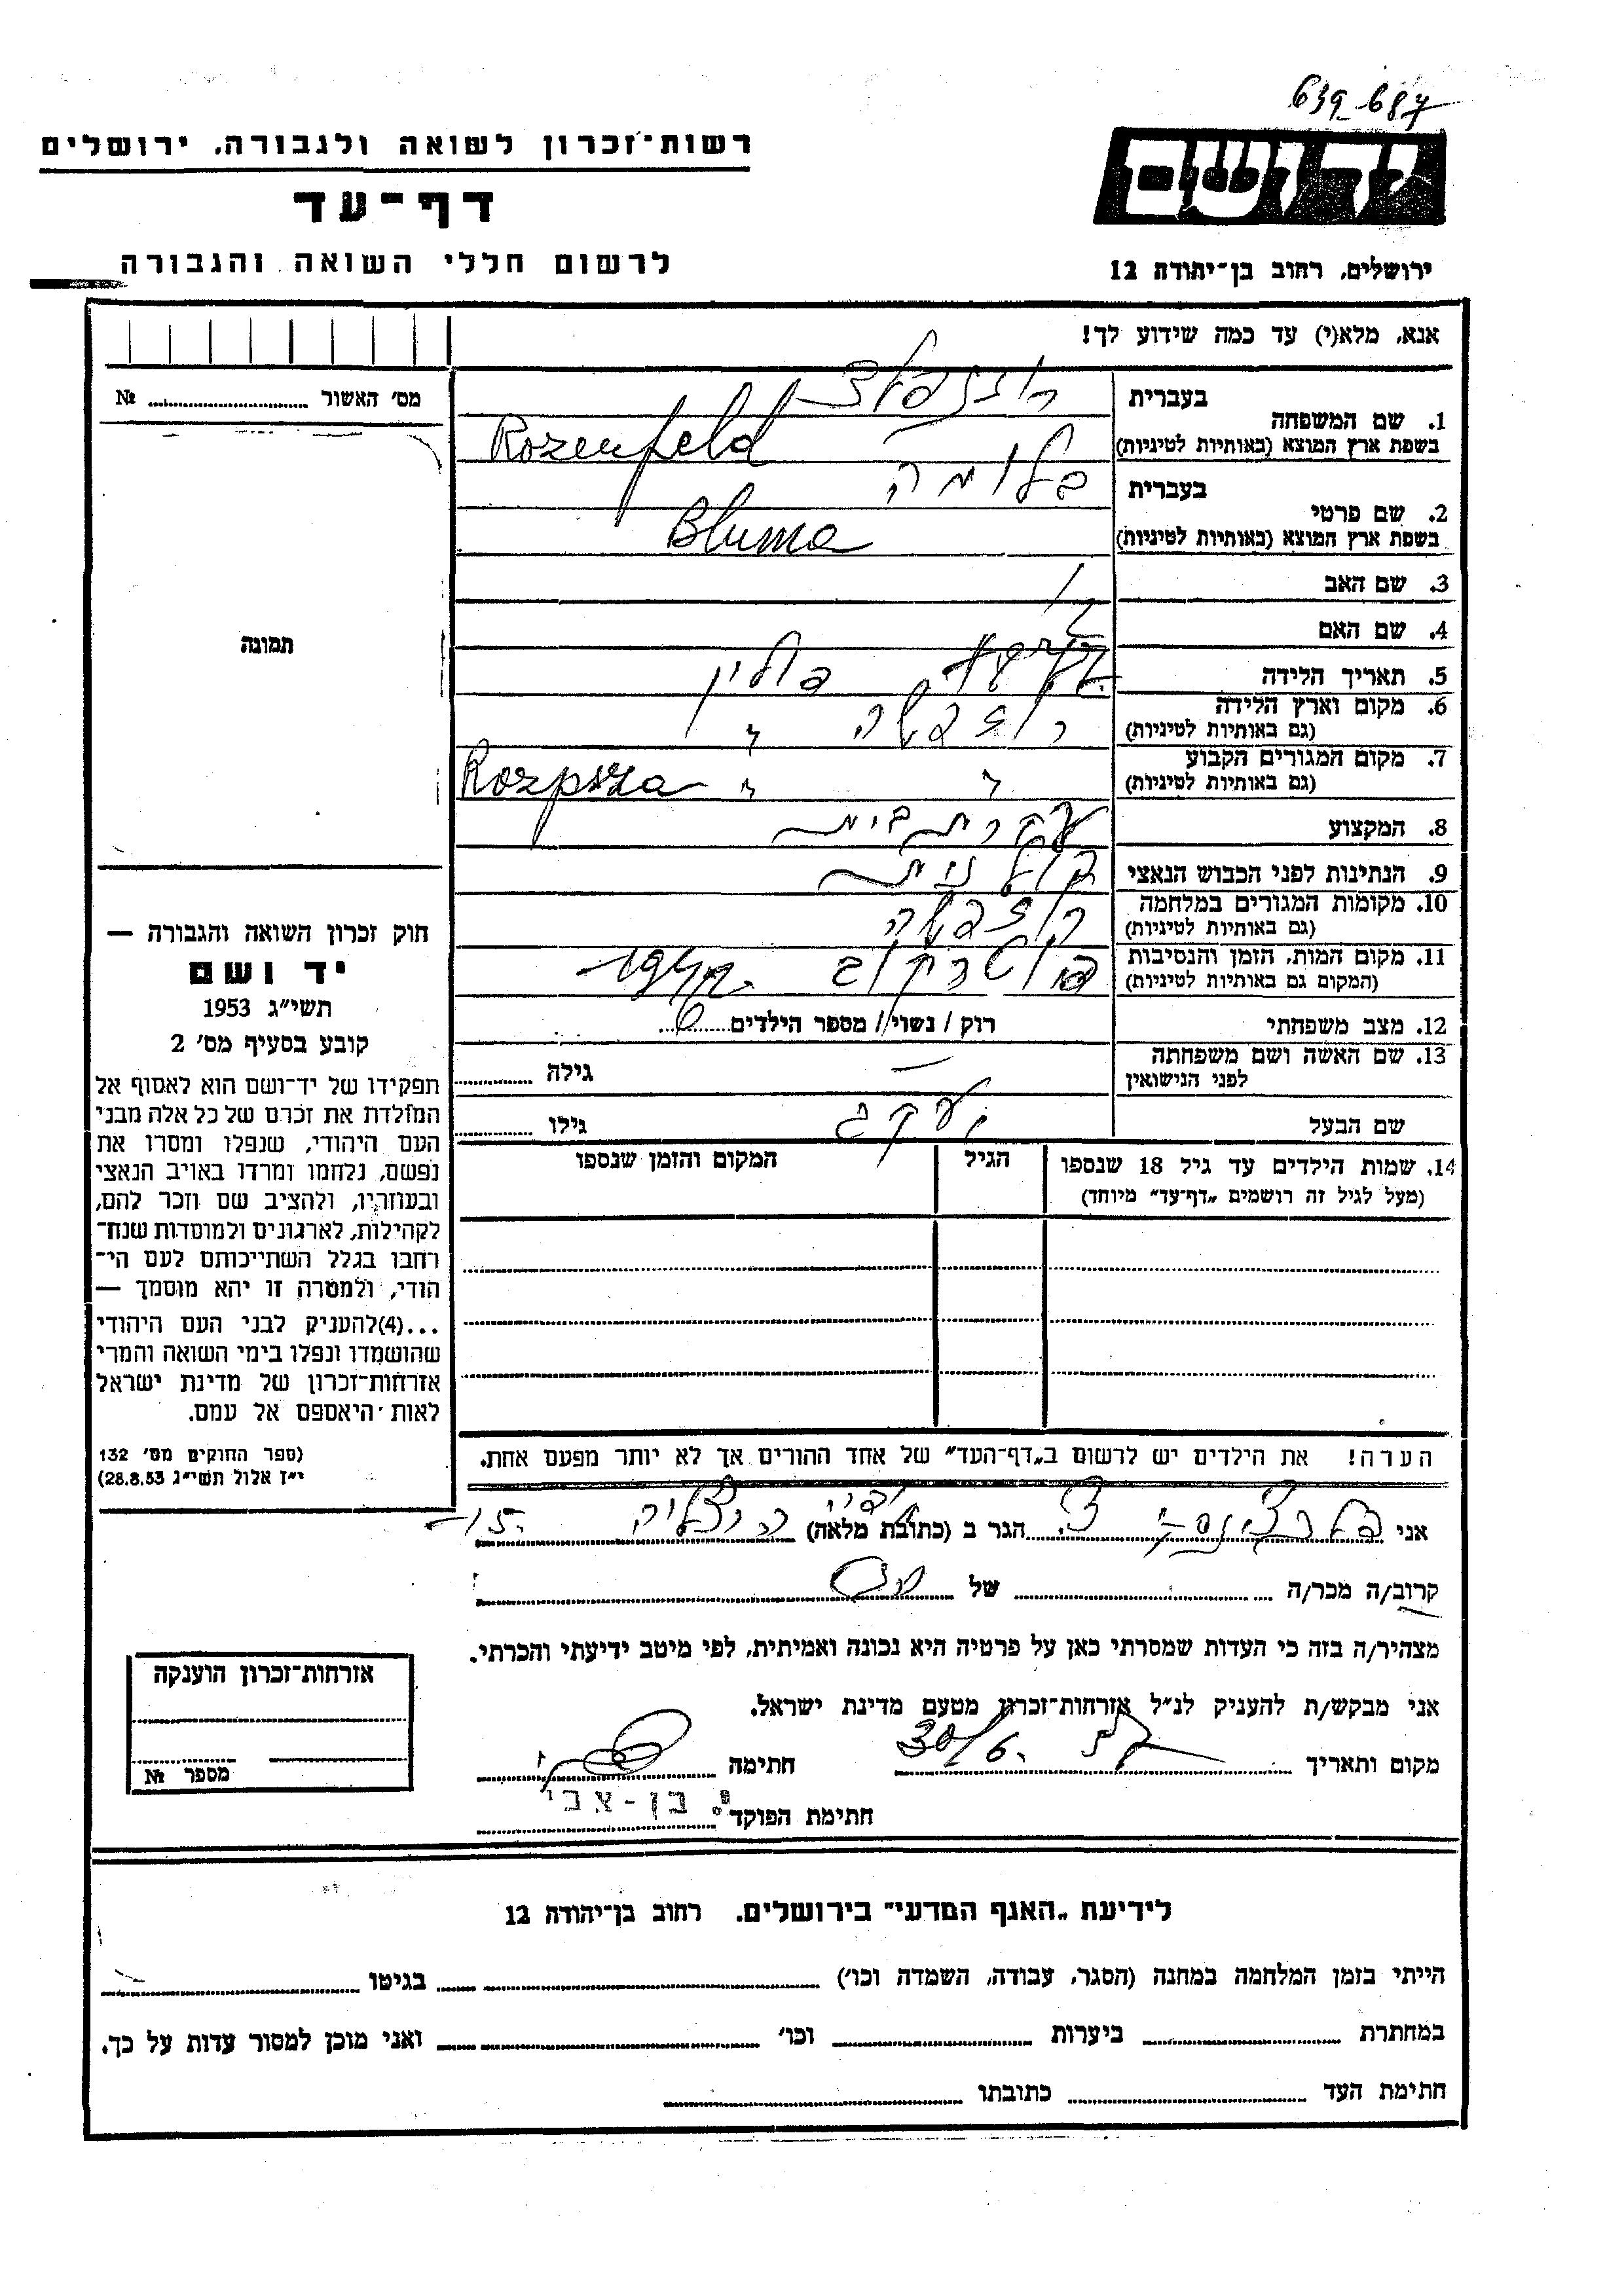 639_687
רשות־זכרון לשואה ולגבורה, ירושלים
יד ושם
דף־עד
לרשום חללי השואה והגבורה
ירושלים, רחוב בן־יהודה 12
אנא, מלא(י) עד כמה שידוע לך!
מס׳ האשור № ........
1. שם המשפחה בעברית רוזנפלד
בשפת ארץ המוצא (באותיות לטיניות) Rozenfeld
2. שם פרטי בעברית בלומה
בשפת ארץ המוצא (באותיות לטיניות) Bluma
3. שם האב
4. שם האם
תמונה
5. תאריך הלידה פולין
6. מקום וארץ הלידה רוזפשה "
(גם באותיות לטיניות)
7. מקום המגורים הקבוע " " Rozpsza
(גם באותיות לטיניות)
8. המקצוע עקרת בית
9. הנתינות לפני הכבוש הנאצי פולנית
10. מקומות המגורים במלחמה רוזפשה
(גם באותיות לטיניות)
11. מקום המות, הזמן והנסיבות פיוטרקוב
(המקום גם באותיות לטיניות)
12. מצב משפחתי רוק / נשוי / מספר הילדים 6
13. שם האשה ושם משפחתה לפני הנישואין – גילה
שם הבעל יעקב גילו
14. שמות הילדים עד גיל 18 שנספו
(מעל לגיל זה רושמים „דף־עד״ מיוחד)
הגיל
המקום והזמן שנספו
חוק זכרון השואה והגבורה —
יד ושם
תשי״ג 1953
קובע בסעיף מס׳ 2
תפקידו של יד־ושם הוא לאסוף אל
המולדת את זכרם של כל אלה מבני
העם היהודי, שנפלו ומסרו את
נפשם, נלחמו ומרדו באויב הנאצי
ובעוזריו, ולהציב שם וזכר להם,
לקהילות, לארגונים ולמוסדות שנח־
רחבו בגלל השתייכותם לעם הי־
הודי, ולמטרה זו יהא מוסמך —
...(4)להעניק לבני העם היהודי
שהושמדו ונפלו בימי השואה והמרי
אזרחות־זכרון של מדינת ישראל
לאות היאספם אל עמם.
(ספר החוקים מס׳ 132
י״ז אלול תשי״ג 28.8.53)
הערה! את הילדים יש לרשום ב„דף־העד״ של אחד ההורים אך לא יותר מפעם אחת.
אני הגר ב (כתובת מלאה) הרצליה
קרוב/ה מכר/ה של
מצהיר/ה בזה כי העדות שמסרתי כאן על פרטיה היא נכונה ואמיתית, לפי מיטב ידיעתי והכרתי.
אני מבקש/ת להעניק לנ״ל אזרחות־זכרון מטעם מדינת ישראל.
מקום ותאריך 30/6 חתימה
חתימת הפוקד י. בן-צבי
אזרחות־זכרון הוענקה
מספר №
לידיעת „האגף המדעי״ בירושלים, רחוב בן־יהודה 12
הייתי בזמן המלחמה במחנה (הסגר, עבודה, השמדה וכו׳) בגיטו
במחתרת ביערות וכו׳ ואני מוכן למסור עדות על כך.
חתימת העד כתובתו